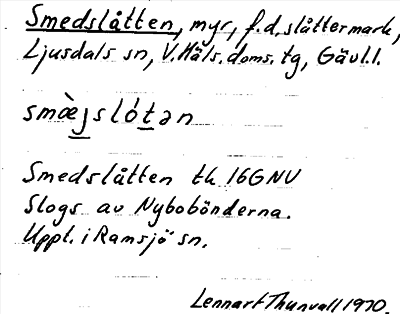 Smedslåtten, myr, f.d. slåttermark,
Ljusdals sn, V. Häls. doms. tg, Gävl.l.
smæ̀j̲slót̲ən
Smedslåtten tk 16GNV
Slogs av Nybobönderna.
Uppt. i Ramsjö sn.
Lennart Thunvall 1970.